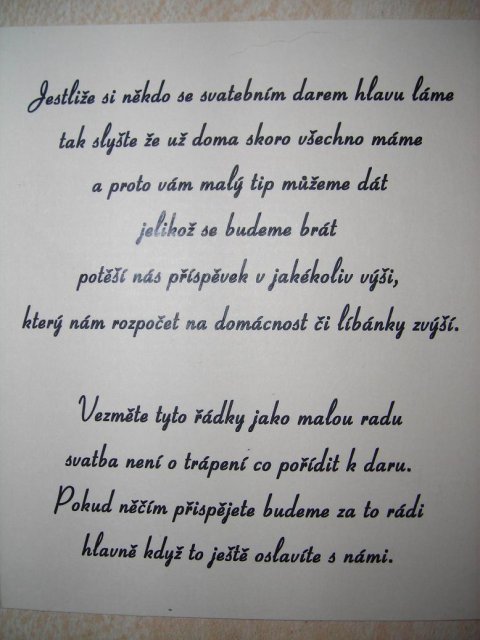 Jestliže si někdo se svatebním darem hlavu láme
tak slyšte že už doma skoro všechno máme
a proto vám malý tip můžeme dát
jelikož se budeme brát
potěší nás příspěvek v jakékoliv výši,
který nám rozpočet na domácnost či líbánky zvýší.
Vezměte tyto řádky jako malou radu
svatba není o trápení co pořídit k daru.
Pokud něčím přispějete budeme za to rádi
hlavně když to ještě oslavíte s námi.